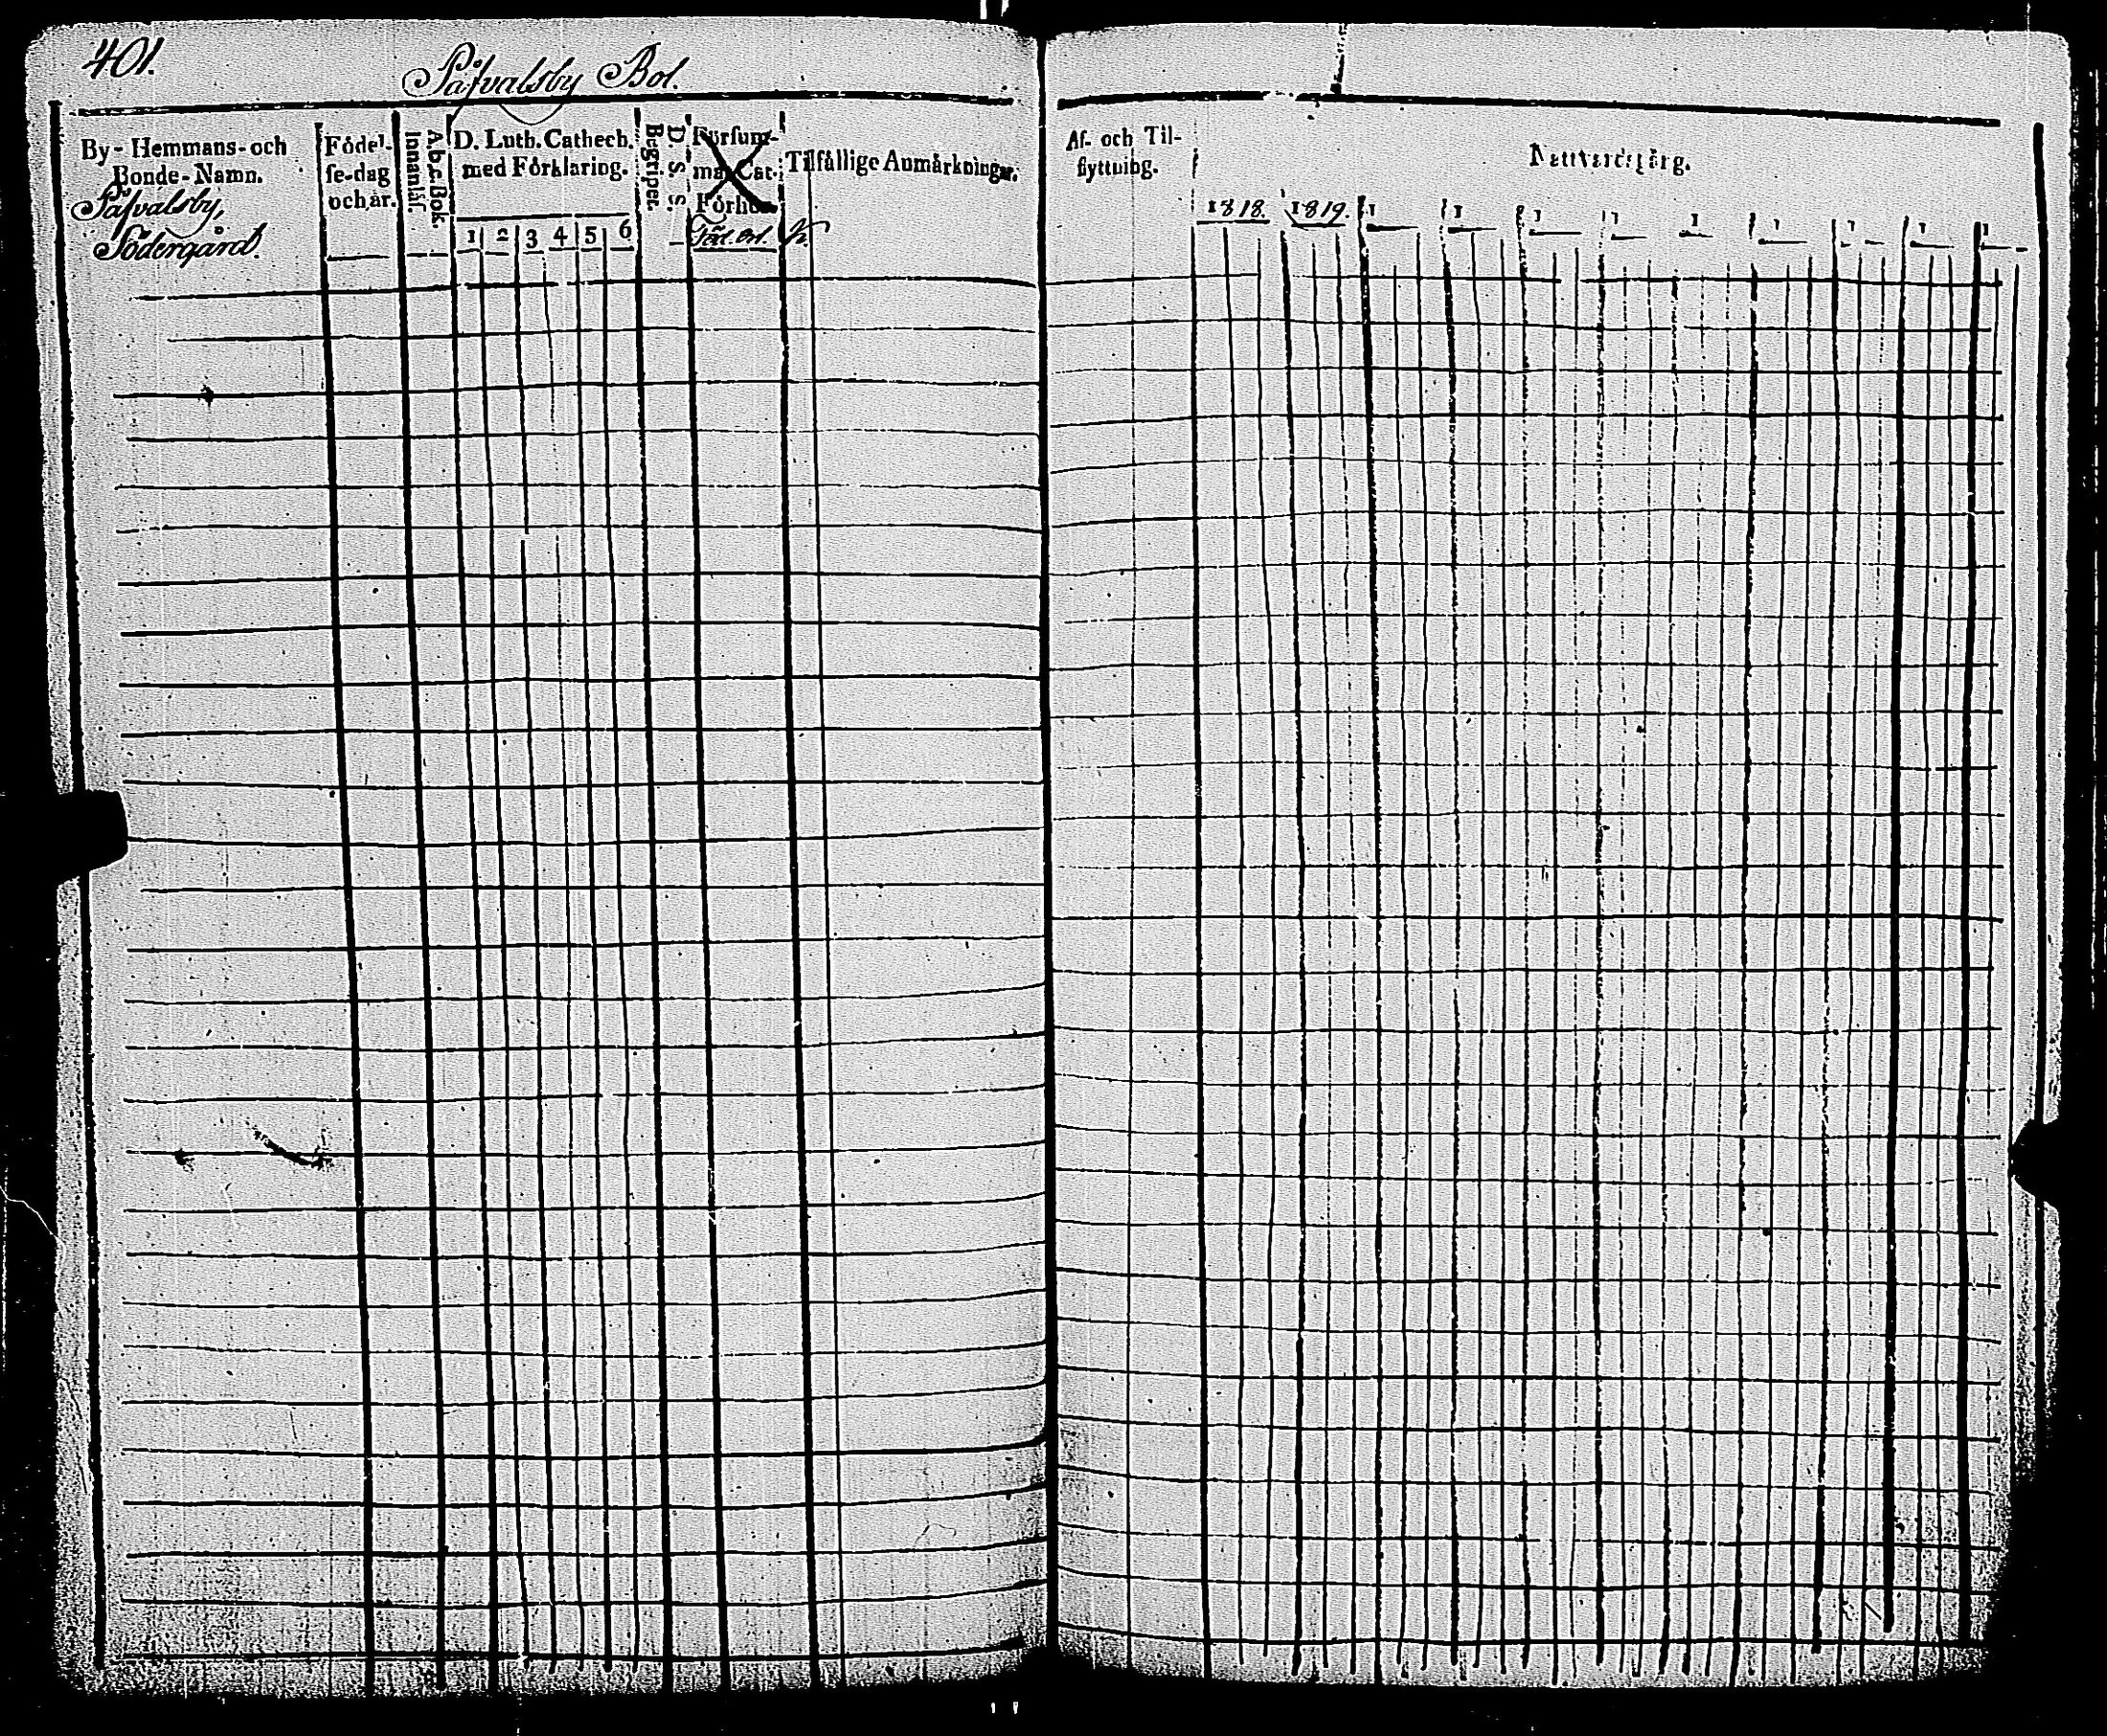 401.
Påfvalsby Bol.
By- Hemmans- och
Bonde-Namn.
Påfvalsby,
Södergård.
Födel-
se-dag
och år.
A b c Bok.
Innanläs.
D. Luth. Cathech.
med Förklaring.
1 2 3 4 5 6
D. S. S.
Begriper.
Försum-
ma Cat.
Förhör.
Tilfällige Anmärkningar.
Af- och Til-
flyttning.
Nattvardsgång.
1818. 1819. 1 1 1 1 1 1 1 1 1